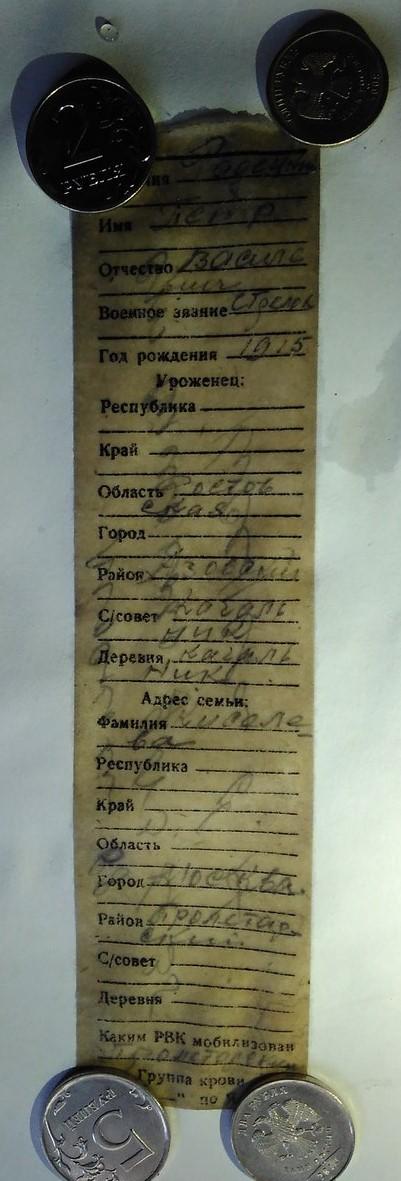 2
РУБЛЯ
Имя Петр
Отчество Василь
Военное звание Стрелок
Год рождения 1915
Уроженец:
Республика
Край
Область Ростов
ская
Город
Район Азовский
С/совет Кагаль
ник
Деревня Кагаль
ник
Адрес семьи:
Фамилия
ва
Республика
Край
Область
Город Москва
Район Пролетар
ский
С/совет
Деревня
Каким РВК мобилизован
Группа крови
" по
5
РУБЛЕЙ
ДВА РУБЛЯ